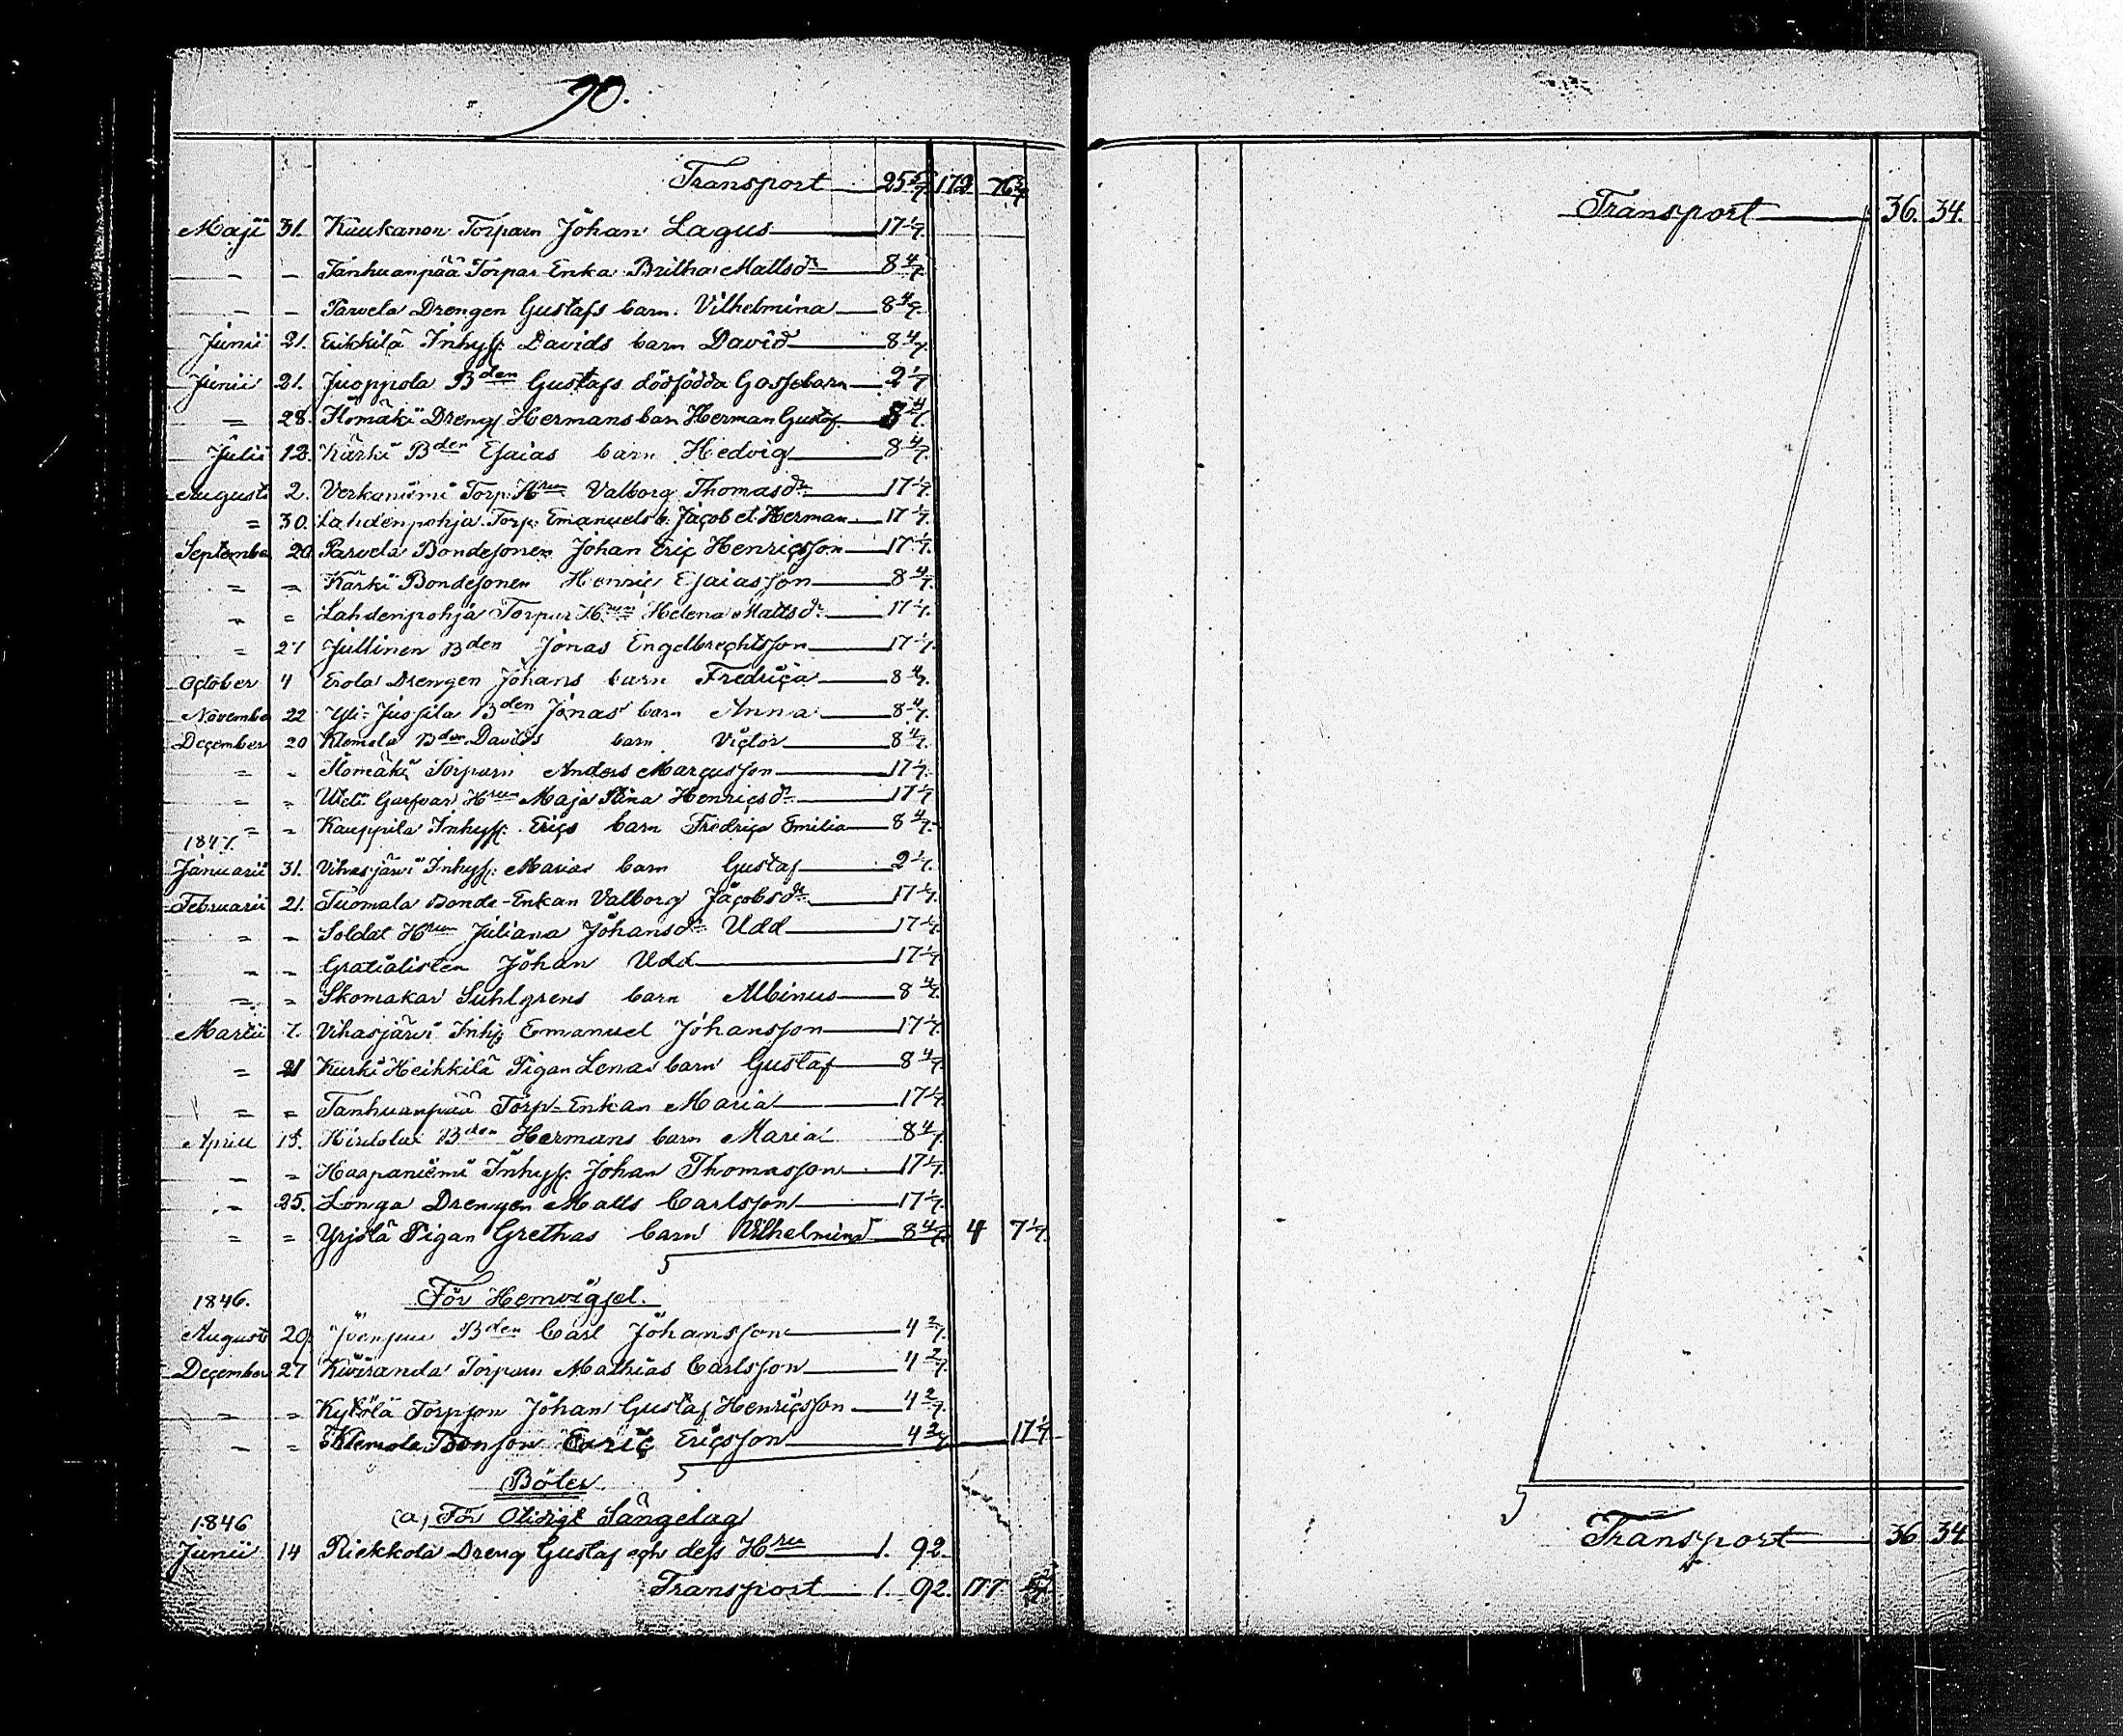 90.
Transport 25 5/7 172 76 3/7
Maji 31. Kaukanen Torparn Johan Lagus 17 1/7.
– – Tanhuanpää Torpar Enka Britha Mattsdr 8 4/7
– – Parvela Drengen Gustafs barn Vilhelmina 8 4/7.
Junii 21. Erikkilä Inhyss: Davids barn David 8 4/7.
Junii 21. Juoppola Bden Gustafs dödfödda Gossebarn 2 1/7
= 28. Ilomäki Dreng Hermans barn Herman Gustaf 8 4/7.
Julii 12. Kärki Bden Esaias barn Hedvig 8 4/7.
Augusti 2. Verkaniemi Torp: Hrun Valborg Thomasdr 17 1/7.
= 30. Lahdenpohja Torp: Emanuels b. Jacob et Herman 17 1/7.
Septembe 20 Parvela Bondesonen Johan Eric Henricsson 17 1/7.
= = Kärki Bondesonen Henric Esaiasson 8 4/7.
= = Lahdenpohja Torpar Hrun Helena Mattsdr 17 1/7.
= 27 Jullinen Bden Jonas Engelbrechtsson 17 1/7.
October 4 Erola Drengen Johans barn Fredrica 8 4/7.
Novembe 22 Yli-Jussila Bden Jonas barn Anna 8 4/7.
December 20 Klemola Bden Davids barn Victor 8 4/7.
= = Ilomäki Torparn Anders Marcusson 17 1/7.
= = Uddi Garfvar Hrun Maja Stina Henricsdr 17 1/7
= = Kauppila Inhyss: Erics barn Fredrica Emilia 8 4/7.
1847.
Januarii 31. Vihasjärvi Inhyss: Marias barn Gustaf 2 1/7.
Februarii 21. Tuomala Bonde-Enkan Valborg Jacobsdr 17 1/7.
= = Soldat Hrun Juliana Johansdr Udd 17 1/7.
= = Gratialisten Johan Udd 17 1/7
= = Skomakar Suhlgrens barn Albinus 8 4/7.
Martii 7. Vihasjärvi Inhs Emanuel Johansson 17 1/7.
= 21 Kurki Heikkilä Pigan Lenas barn Gustaf 8 4/7
= = Tanhuanpää Torp-Enkan Maria 17 1/7
Aprill Bden Hermans barn Maria 8 4/7.
– = Haapaniemi Inhyss. Johan Thomasson 17 1/7.
= 25. Longa Drengen Matts Carlsson 17 1/7.
= = Yrjölä Pigan Grethas barn Vilhelmina 8 4/7. 4 7 1/7.
För Hemvigsel.
1846.
Augusti 20. Bden Carl Johansson 4 2/7.
December 27 Kiviranda Torparn Mathias Carlsson 4 2/7.
= = Kytölä Torpson Johan Gustaf Henricsson 4 2/7.
= = Klemola Bonson Eric Ericsson 4 2/7 17 1/7
Böter
(a) För Otidigt Sängelag
1846
Junii 14 Riekkola Dreng Gustaf och dess Hru 1. 92.
Transport 1. 92. 177
Transport 36. 34.
Transport 36 34.